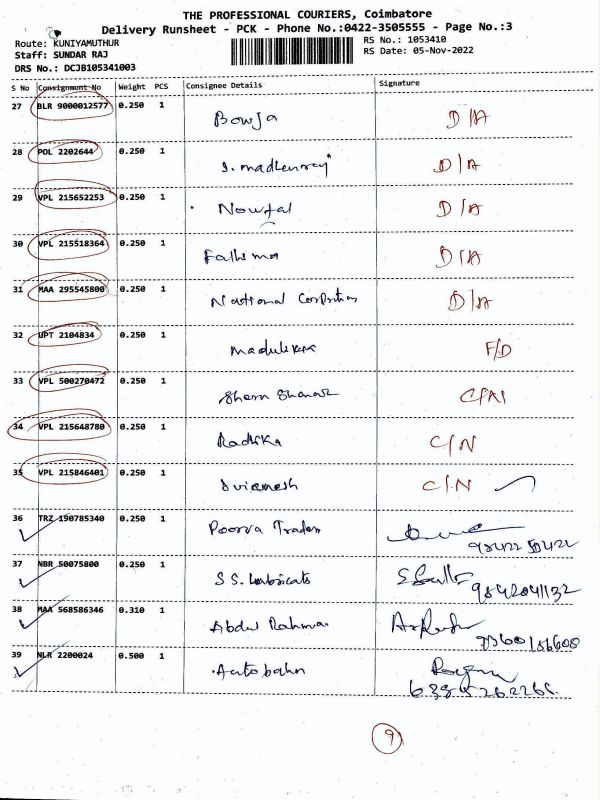 THE PROFESSIONAL COURIERS, Coimbatore
Delivery Runsheet - PCK - Phone No.:0422-3505555 - Page No.:3
Route: KUNIYAMUTHUR
RS No.: 1053410
Staff: SUNDAR RAJ
RS Date: 05-Nov-2022
DRS No.: DCJB105341003
S No Consignment No Weight PCS Consignee Details Signature
27 BLR 9000012577 0.250 1 Bowja D/A
28 POL 2202644 0.250 1 D/A
29 VPL 215652253 0.250 1 Nowfal D/A
30 VPL 215518364 0.250 1 Fathima D/A
31 MAA 295545800 0.250 1 National D/A
32 UPT 2104834 0.250 1 F/D
33 VPL 500270472 0.250 1
34 VPL 215648780 0.250 1 Radhika C/N
35 VPL 215846401 0.250 1 C/N
36 TRZ 190785340 0.250 1 Poorva Traders
37 NBR 50075800 0.250 1 S S. Lubricats 9842041132
38 MAA 568586346 0.310 1 Abdul Rahman
39 NLR 2200024 0.500 1 Autobahn
9